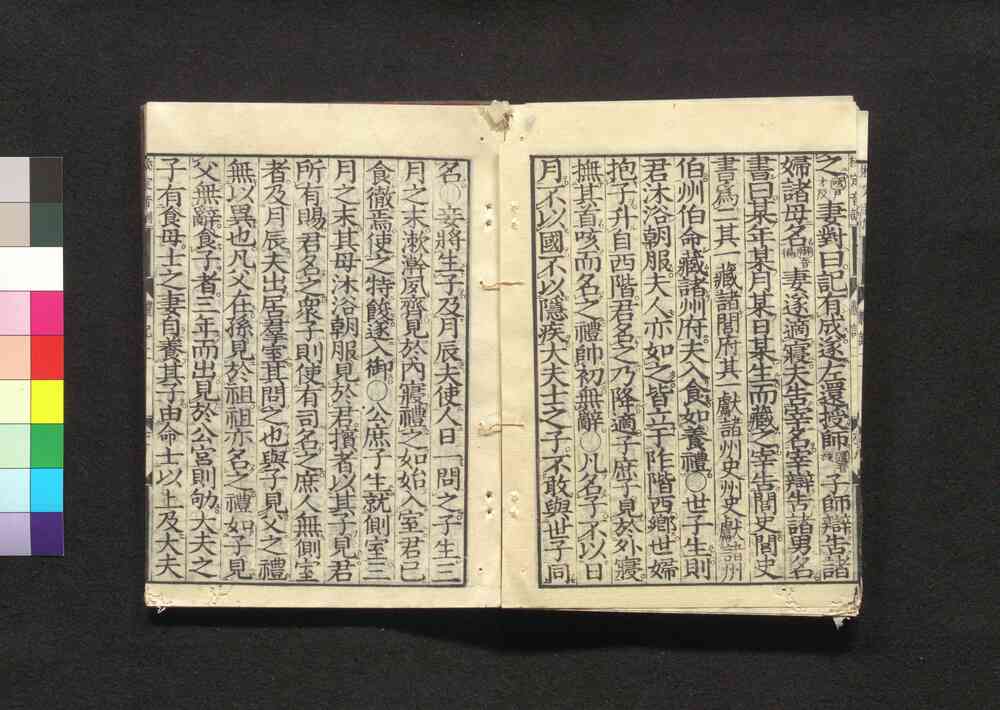 之妻對曰記有成遂左還授師子師辯告諸
婦諸母名妻遂適寢夫告宰名宰辯告諸男名
書曰某年某月某日某生而藏之宰告閭史閭史
書爲二其一藏諸閭府其一獻諸州史州史獻諸州
伯州伯命藏諸州府夫入食如養禮○世子生則
君沐浴朝服夫人亦如之皆立于阼階西鄉世婦
抱子升自西階君名之乃降適子庶子見於外寢
撫其首咳而名之禮帥初無辭○凡名子不以日
月不以國不以隱疾大夫士之子不敢與世子同
名○妾將生子及月辰夫使人日一問之子生三
月之末漱澣夙齊見於內寢禮之如始入室君已
食徹焉使之特餕遂入御○公庶子生就側室三
月之末其母沐浴朝服見於君擯者以其子見君
所有賜君名之衆子則使有司名之庶人無側室
者及月辰夫出居羣室其問之也與子見父之禮
無以異也凡父在孫見於祖祖亦名之禮如子見
父無辭食子者三年而出見於公宮則劬大夫之
子有食母士之妻自養其子由命士以上及大夫